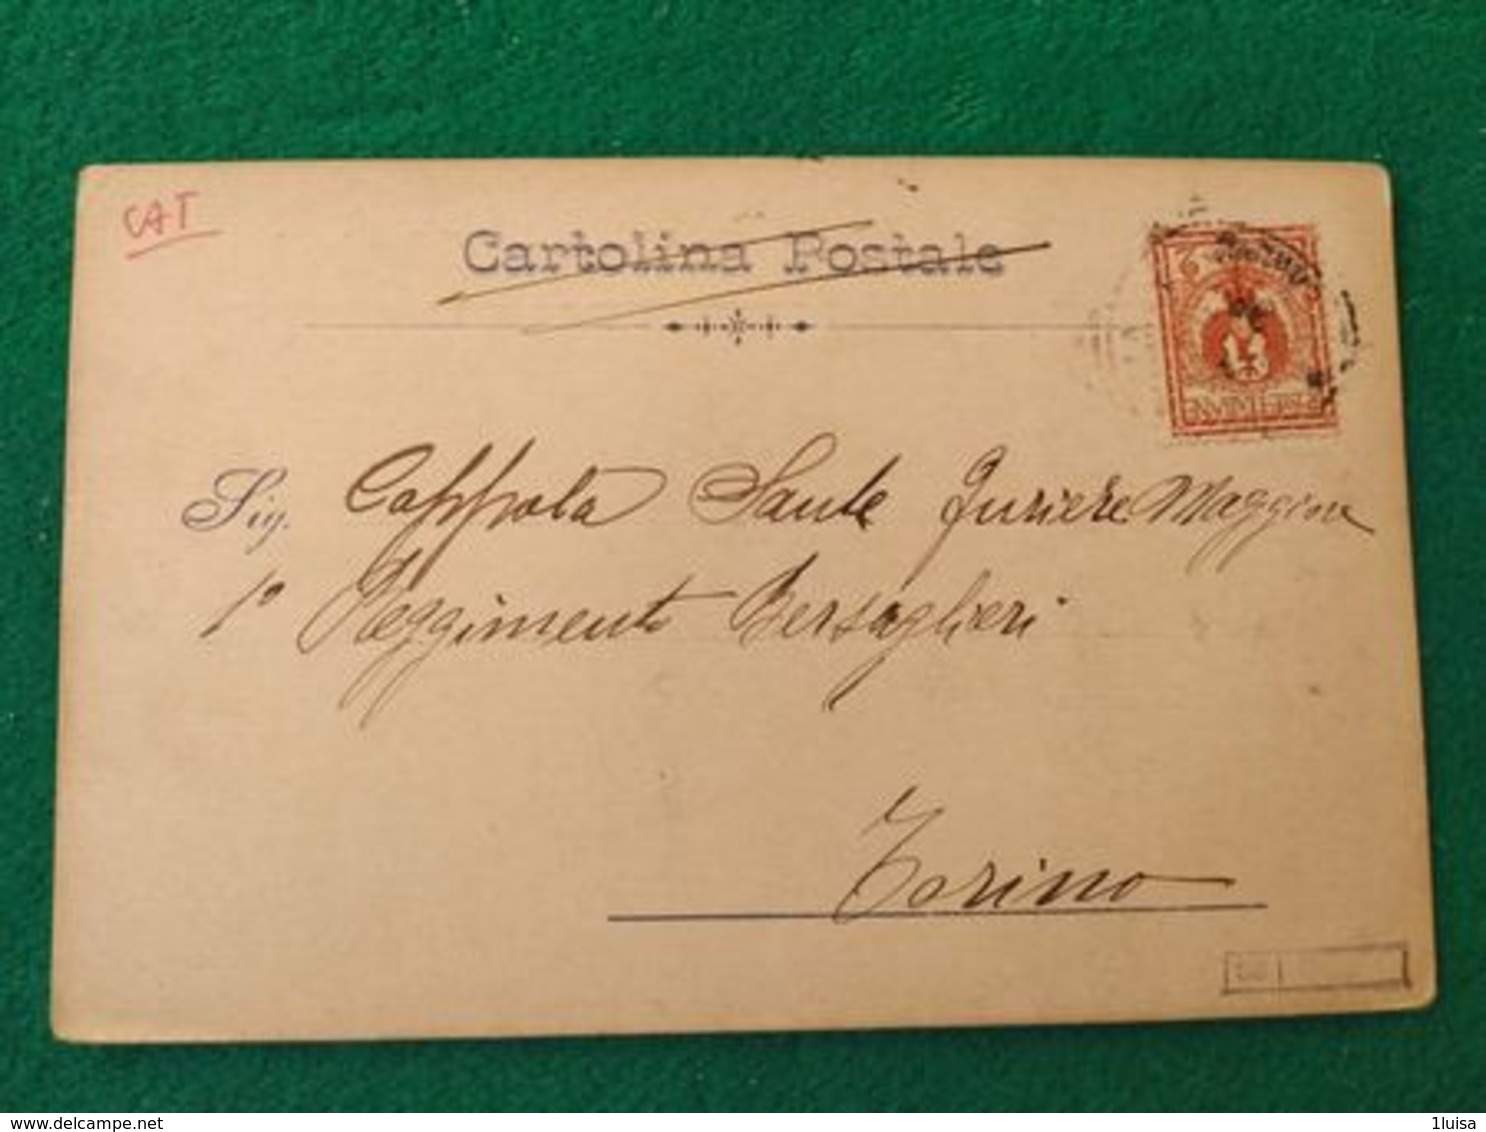 CAT
Cartolina Postale
Sig. Coppola Sante Furiere Maggiore
1° Reggimento Bersaglieri
Torino
delcampe.net
1luisa